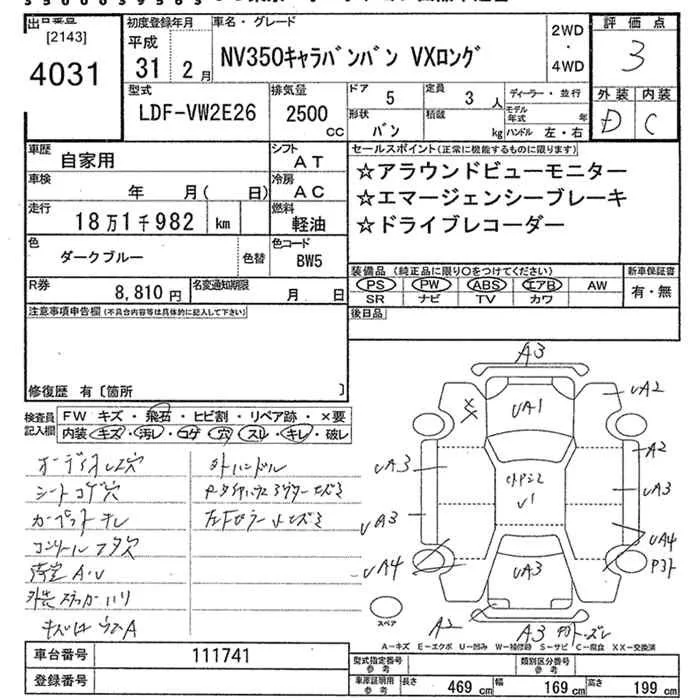 [2143]
4031
初度登録年月
平成
31 2 月
車名・グレード
NV350キャラバンバン VXロング
2WD
・
4WD
評価点
3
型式
LDF-VW2E26
排気量
2500
CC
ドア
5
定員
3 人
形状
バン
積載
kg
ディーラー・並行
モデル年式 年
ハンドル 左・右
外装 内装
D C
車歴
自家用
シフト
AT
車検
年 月( 日)
冷房
AC
走行
18万1千982 km
燃料
軽油
色
ダークブルー
色替
色コード
BW5
R券
8,810円
名変通知期限
月 日
セールスポイント(正常に機能するものに限ります)
☆アラウンドビューモニター
☆エマージェンシーブレーキ
☆ドライブレコーダー
装備品 (純正品に限り○をつけてください)
新車保証書
PS PW ABS エアB AW
有・無
SR ナビ TV カワ
後日品
注意事項申告欄(不具合内容等は具体的に記入して下さい)
修復歴 有〔箇所 〕
検査員
記入欄
FW キズ・飛石・ヒビ割・リペア跡・×要
内装・キズ・汚レ・コゲ・穴・スレ・キレ・破レ
オーディオレス穴
シートコゲ穴
カーペットキレ
外ハンドル
A3
UA2
UA1
A2
UA3
UA3
UA3
U1
UA4
UA4
UA3
A2
A3
スペア
A-キズ E-エクボ U-凹み W-補修跡 S-サビ C-腐食 XX-交換済
車台番号
111741
登録番号
型式指定番号
参考
類別区分番号
参考
車庫証明用
参考
長さ 469 cm
幅 169 cm
高さ 199 cm